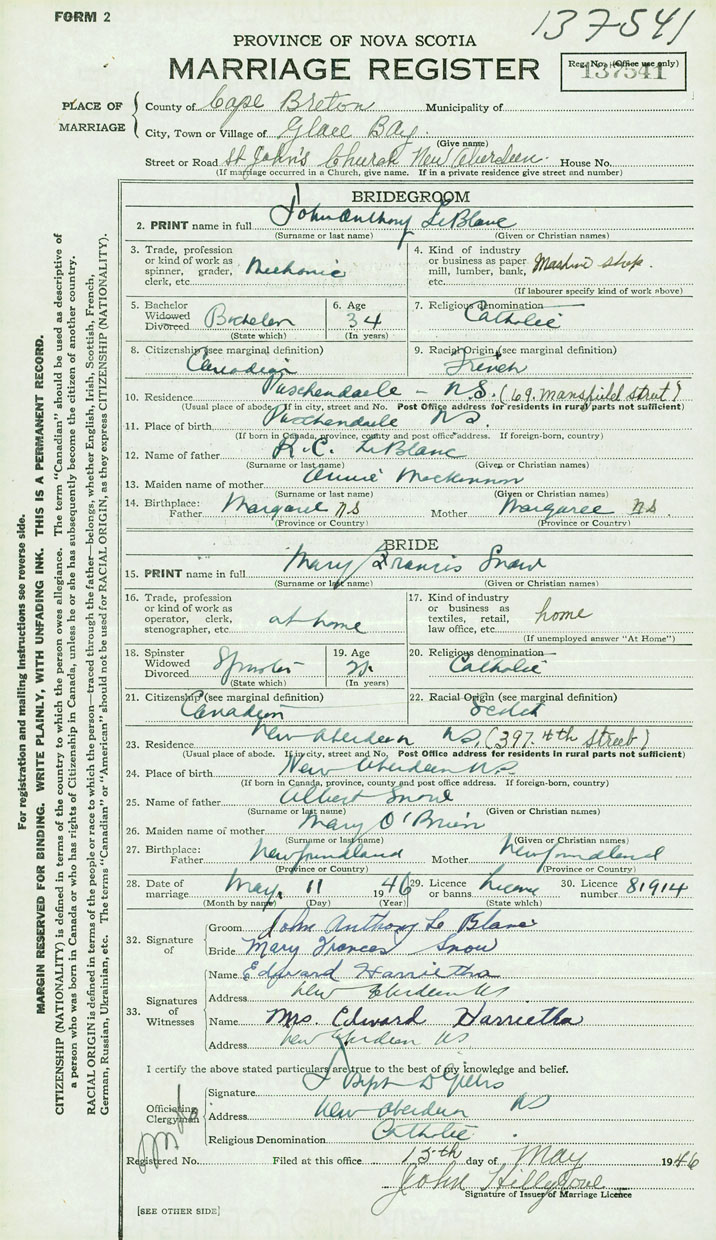 FORM 2
137541
PROVINCE OF NOVA SCOTIA
MARRIAGE REGISTER
Reg. No. (Office use only)
137541
PLACE OF MARRIAGE
County of Cape Breton Municipality of
City, Town or Village of Glace Bay.
(Give name)
Street or Road St John's Church New Aberdeen. House No.
(If marriage occurred in a Church, give name. If in a private residence give street and number)
BRIDEGROOM
2. PRINT name in full John Anthony LeBlanc
(Surname or last name) (Given or Christian names)
3. Trade, profession or kind of work as spinner, grader, clerk, etc. Mechanic
4. Kind of industry or business as paper mill, lumber, bank, etc. Machine shop.
(If labourer specify kind of work above)
5. Bachelor Widowed Divorced Bachelor
(State which)
6. Age 34
(In years)
7. Religious Denomination Catholic
8. Citizenship (see marginal definition) Canadian
9. Racial Origin (see marginal definition) French
10. Residence Paschendaele - N.S. (69. Mansfield street)
(Usual place of abode. If in city, street and No. Post Office address for residents in rural parts not sufficient)
11. Place of birth Paschendaele N.S.
(If born in Canada, province, county and post office address. If foreign-born, country)
12. Name of father R.C. LeBlanc
(Surname or last name) (Given or Christian names)
13. Maiden name of mother Annie Mackinnon
(Surname or last name) (Given or Christian names)
14. Birthplace: Father Margaree NS Mother Margaree NS.
(Province or Country) (Province or Country)
BRIDE
15. PRINT name in full Mary Francis Snow
(Surname or last name) (Given or Christian names)
16. Trade, profession or kind of work as operator, clerk, stenographer, etc. at home
17. Kind of industry or business as textiles, retail, law office, etc. home
(If unemployed answer "At Home")
18. Spinster Widowed Divorced Spinster
(State which)
19. Age
(In years)
20. Religious denomination Catholic
21. Citizenship (see marginal definition) Canadian
22. Racial Origin (see marginal definition) Scotch
23. Residence New Aberdeen NS, (397. 4th Street)
(Usual place of abode. If in city, street and No. Post Office address for residents in rural parts not sufficient)
24. Place of birth New Aberdeen NS.
(If born in Canada, province, county and post office address. If foreign-born, country)
25. Name of father Albert Snow
(Surname or last name) (Given or Christian names)
26. Maiden name of mother Mary O'Brien
(Surname or last name) (Given or Christian names)
27. Birthplace: Father Newfoundland Mother Newfoundland
(Province or Country) (Province or Country)
28. Date of marriage May, 11 1946
(Month by name) (Day) (Year)
29. Licence or banns Licence
(State which)
30. Licence number 81914
32. Signature of
Groom John Anthony Le Blanc
Bride Mary Frances Snow
33. Signatures of Witnesses
Name Edward Harrietha
Address New Aberdeen NS
Name Mrs. Edward Harrietha
Address New Aberdeen NS
I certify the above stated particulars are true to the best of my knowledge and belief.
Officiating Clergyman
Signature
Address New Aberdeen NS
Religious Denomination Catholic
Registered No. Filed at this office 15th day of May 1946
John
Signature of Issuer of Marriage Licence
[SEE OTHER SIDE]
For registration and mailing instructions see reverse side.
MARGIN RESERVED FOR BINDING. WRITE PLAINLY, WITH UNFADING INK. THIS IS A PERMANENT RECORD.
CITIZENSHIP (NATIONALITY) is defined in terms of the country to which the person owes allegiance. The term "Canadian" should be used as descriptive of
a person who was born in Canada or who has rights of Citizenship in Canada, unless he or she has subsequently become the citizen of another country.
RACIAL ORIGIN is defined in terms of the people or race to which the person—traced through the father—belongs, whether English, Irish, Scottish, French,
German, Russian, Ukrainian, etc. The terms "Canadian" or "American" should not be used for RACIAL ORIGIN, as they express CITIZENSHIP (NATIONALITY).